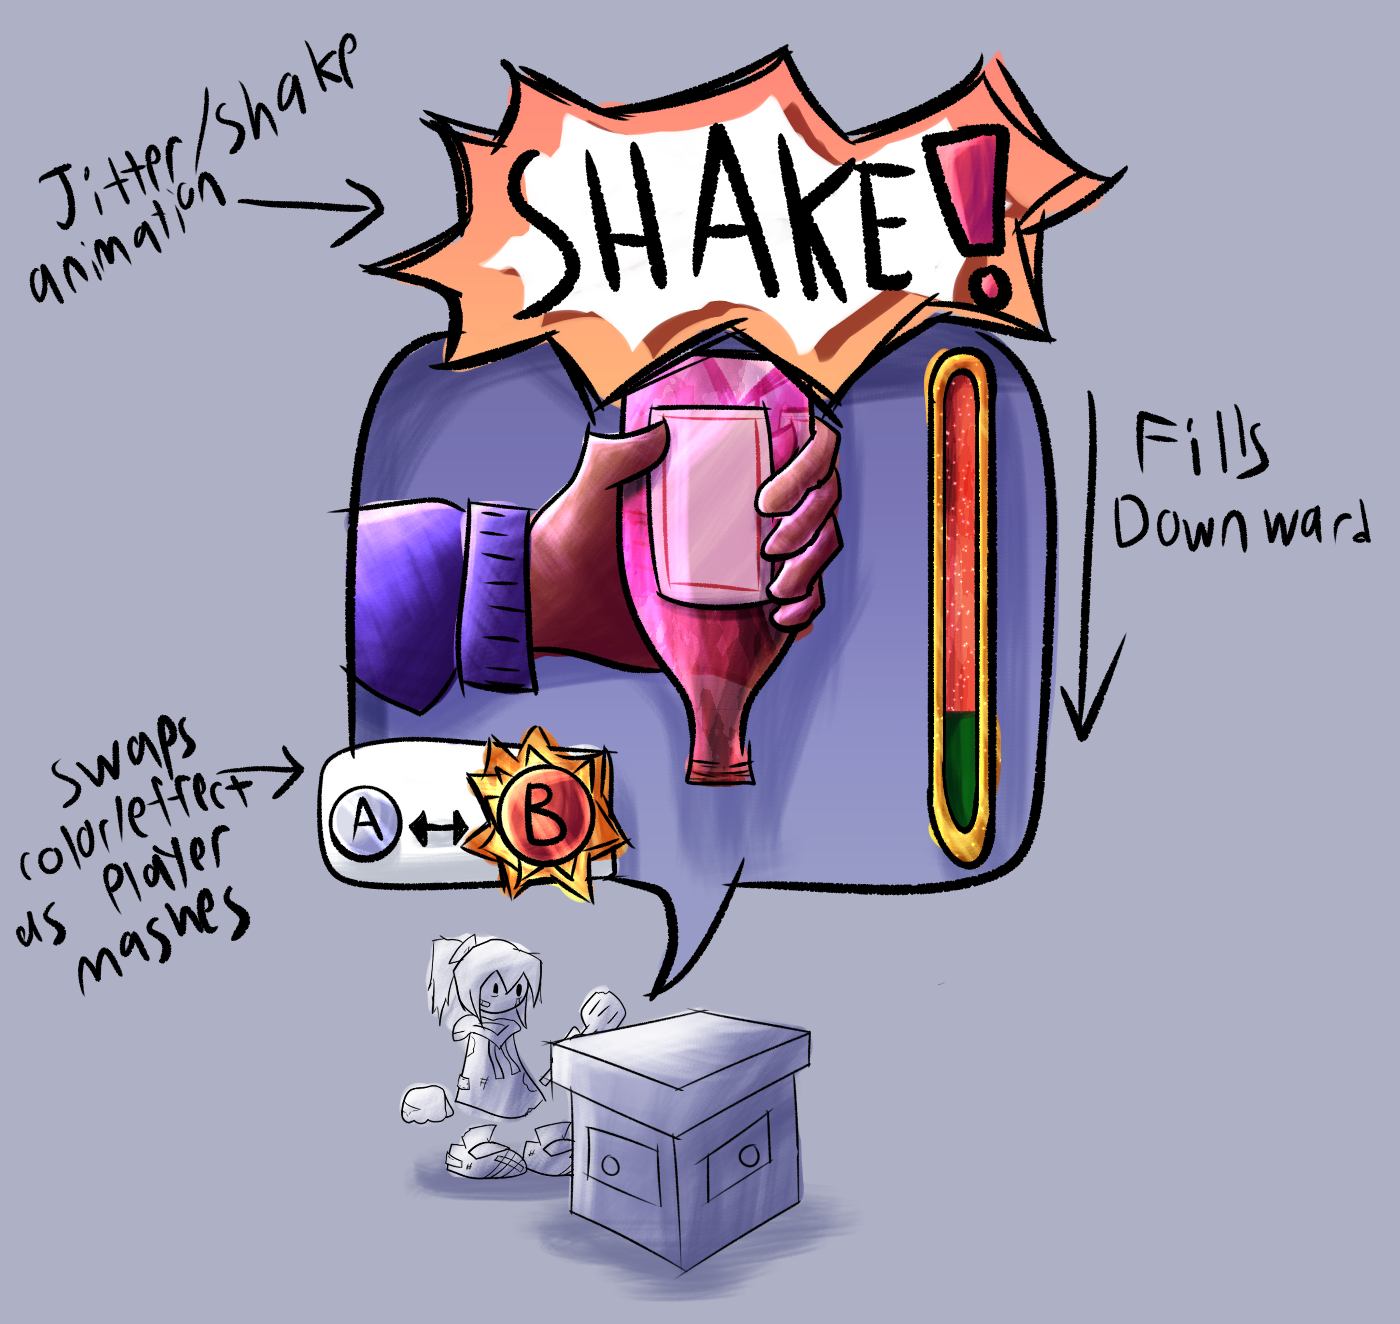 Jitter/shake
animation
SHAKE!
Fills
Downward
swaps
color/effect
as player
mashes
A
B